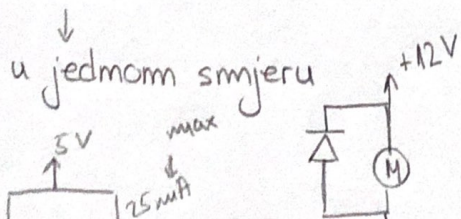 u jednom smjeru
+12V
max
5V
25mA
M